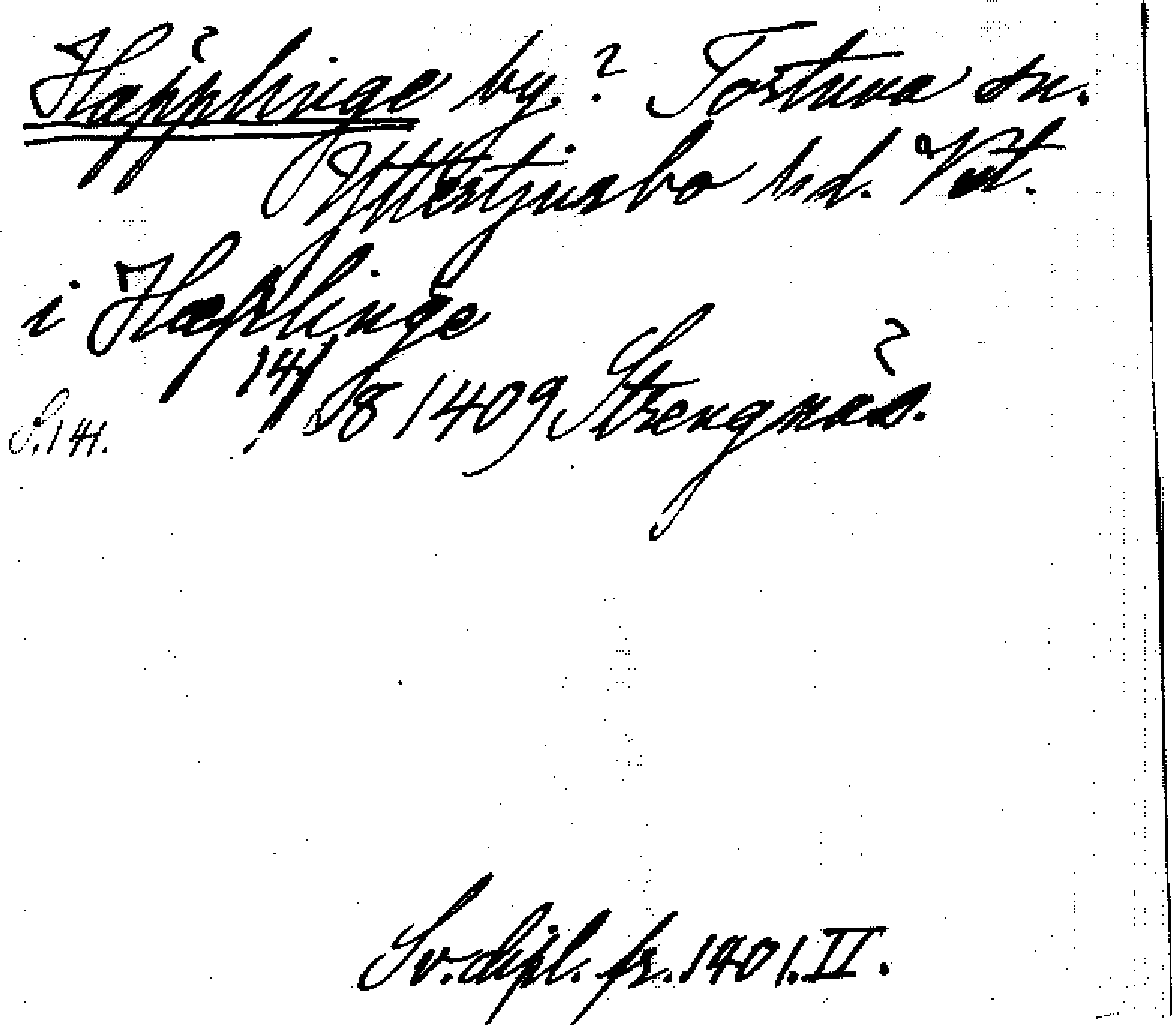 Häpplinge by? Tortuna sn.
Yttertjurbo hd. Vstl.
i Hæplinge
14/8 1409 Strengnäs.
S. 141.
Sv. dipl. fr. 1401. II.